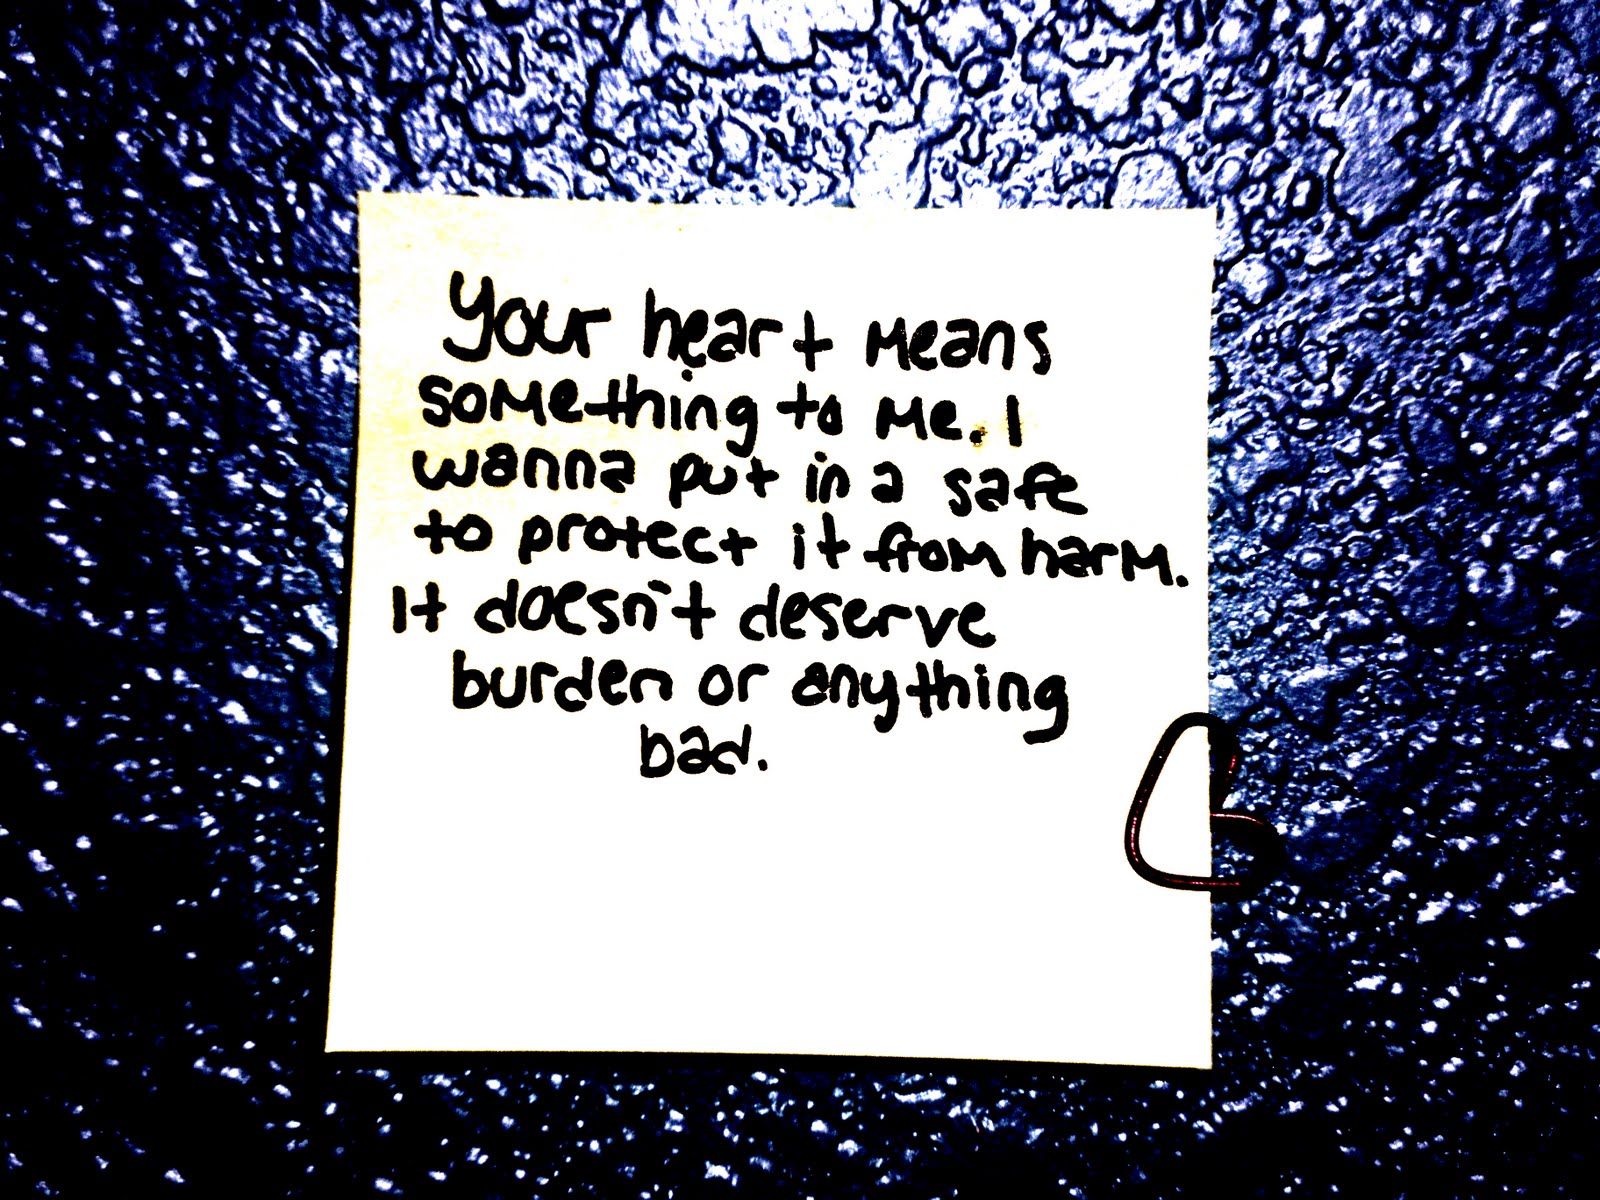 Your heart means
something to me. I
wanna put in a safe
to protect it from harm.
It doesn't deserve
burden or anything
bad.